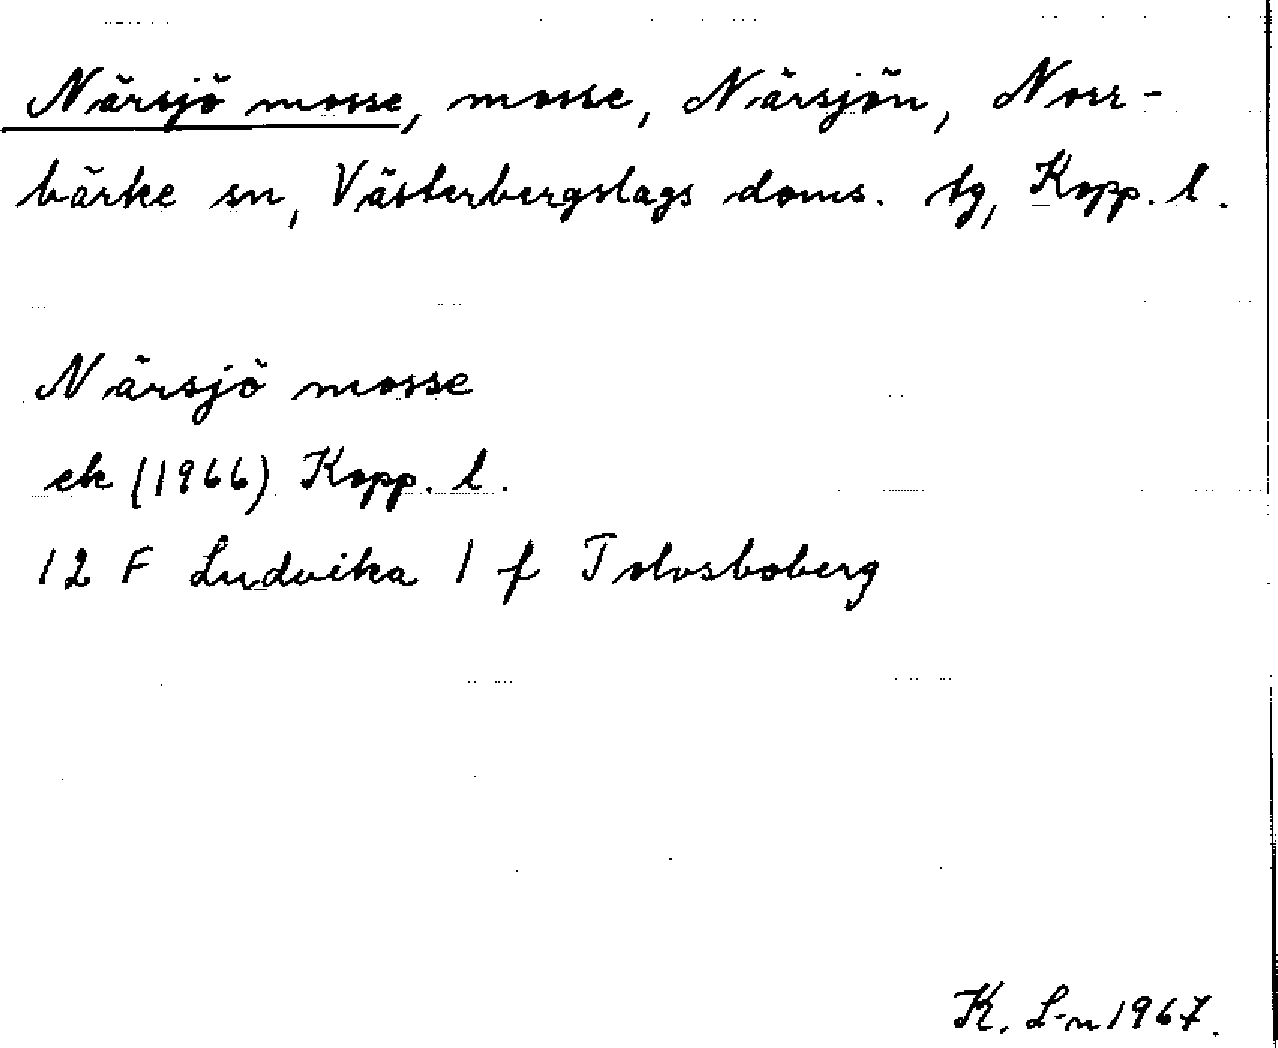 Närsjö mosse, mosse, Närsjön, Norr-
bärke sn, Västerbergslags doms. tg, Kopp. l.
Närsjö mosse
ek (1966) Kopp. l.
12 F Ludvika 1 f Tolvsboberg
K. L-n 1967.